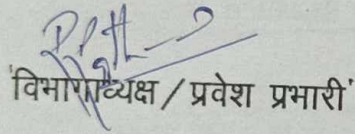 'विभागाध्यक्ष / प्रवेश प्रभारी'